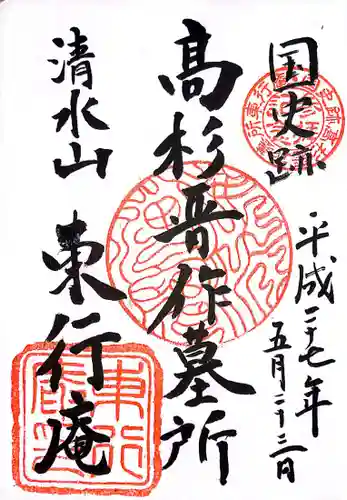 国史跡
平成二十七年
五月二十三日
高杉晋作墓所
清水山
東行庵